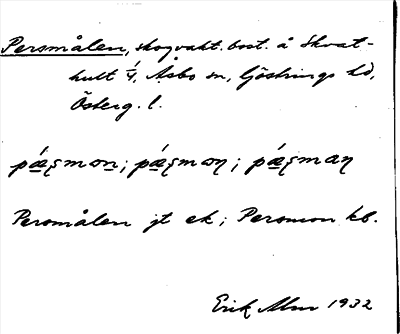 Persmålen, skogvakt. bost. å Skvat-
hult 1/4, Åsbo sn, Göstrings hd,
Österg. l.
pǽʂmon; pǽʂmɔn; pǽʂman
Persmålen jt ek; Persmon kb.
Erik Alm 1932